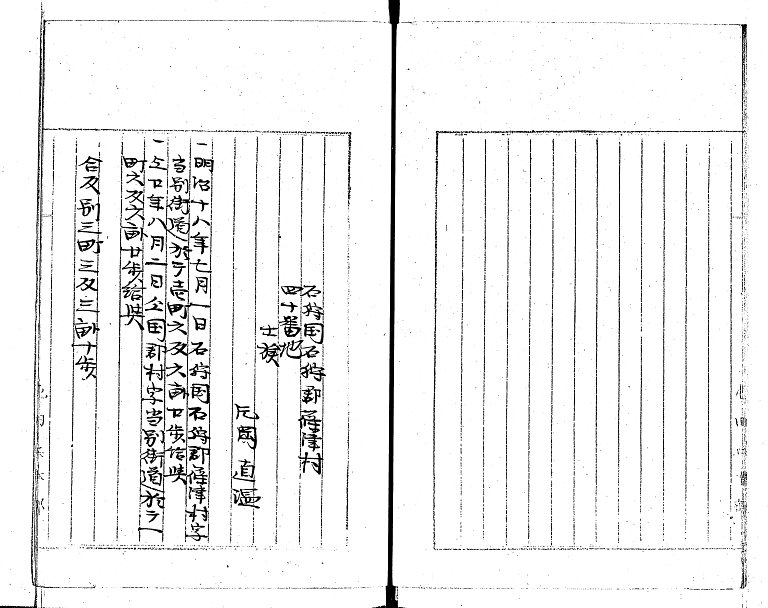 石狩国石狩郡篠津村
四十番地
士族
片岡直温
一明治十八年七月一日石狩国石狩郡篠津村字
当別街道於テ壱町六反六畝廿歩給与
一仝廿年八月二日仝国郡村字当別街道於テ一
町六反六畝廿歩給与
合反別三町三反三畝十歩